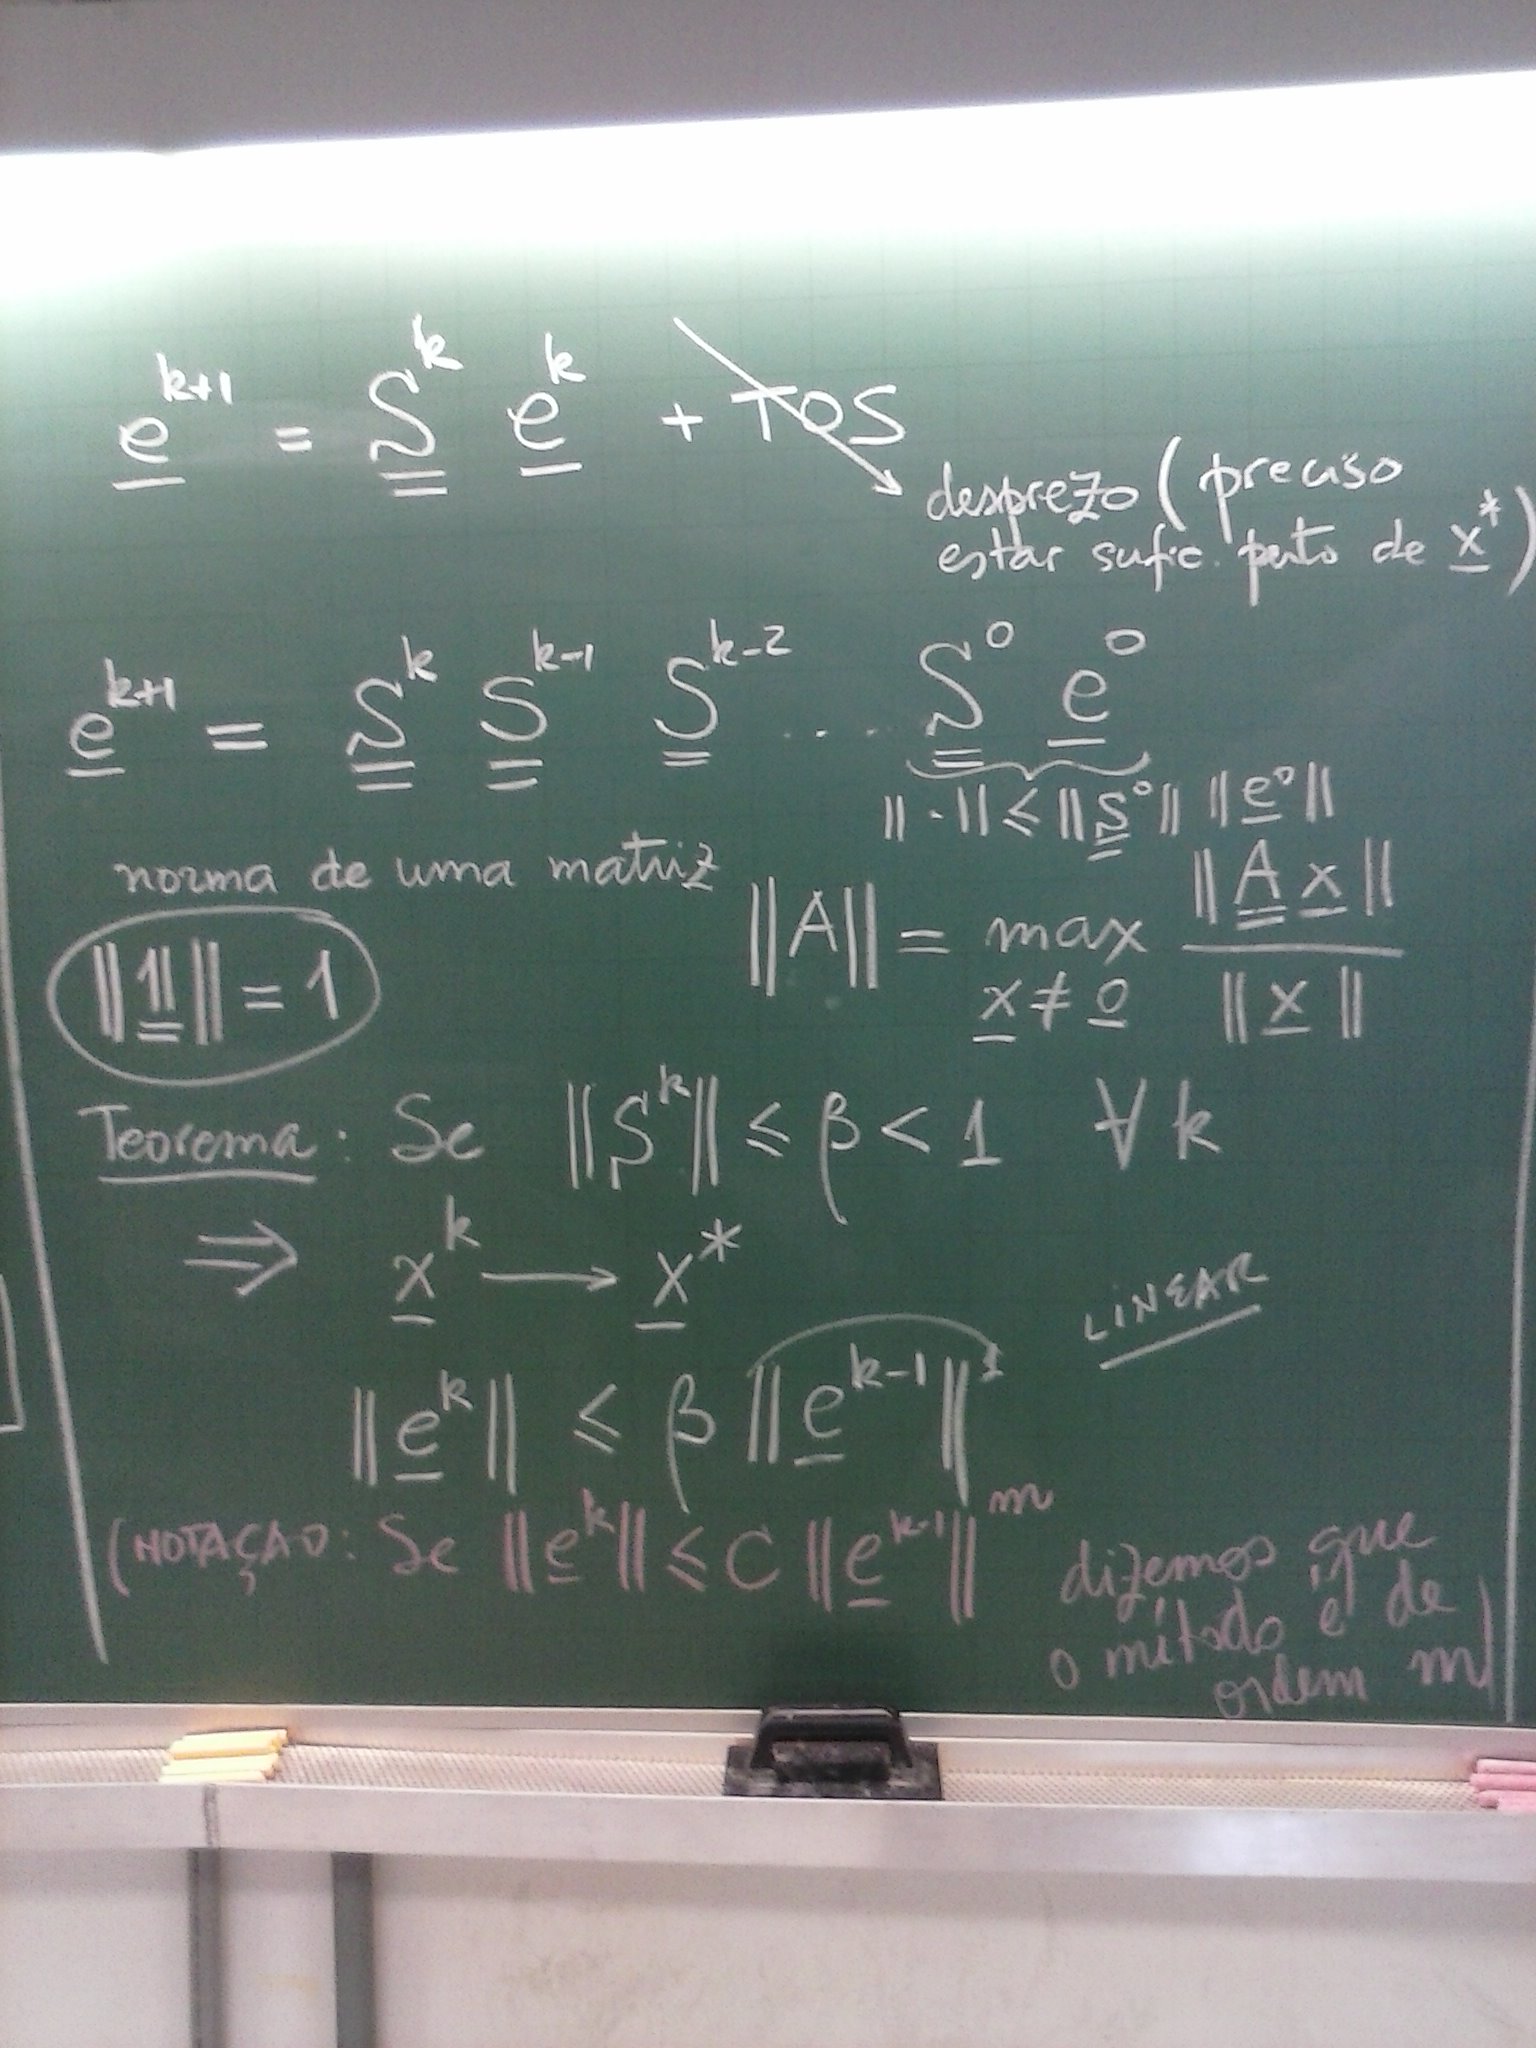 e^{k+1} = S^k e^k + TOS
desprezo (preciso
estar sufic. perto de x*)
e^{k+1} = S^k S^{k-1} S^{k-2} ..... S^0 e^0
||·|| ≤ ||S^0|| ||e^0||
norma de uma matriz
||A|| = max_{x ≠ 0} ||A x|| / ||x||
||1|| = 1
Teorema: Se ||S^k|| ≤ β < 1 ∀ k
⇒ x^k → x*
LINEAR
||e^k|| ≤ β ||e^{k-1}||^1
(NOTAÇÃO: Se ||e^k|| ≤ C ||e^{k-1}||^m
dizemos que
o método é de
ordem m)